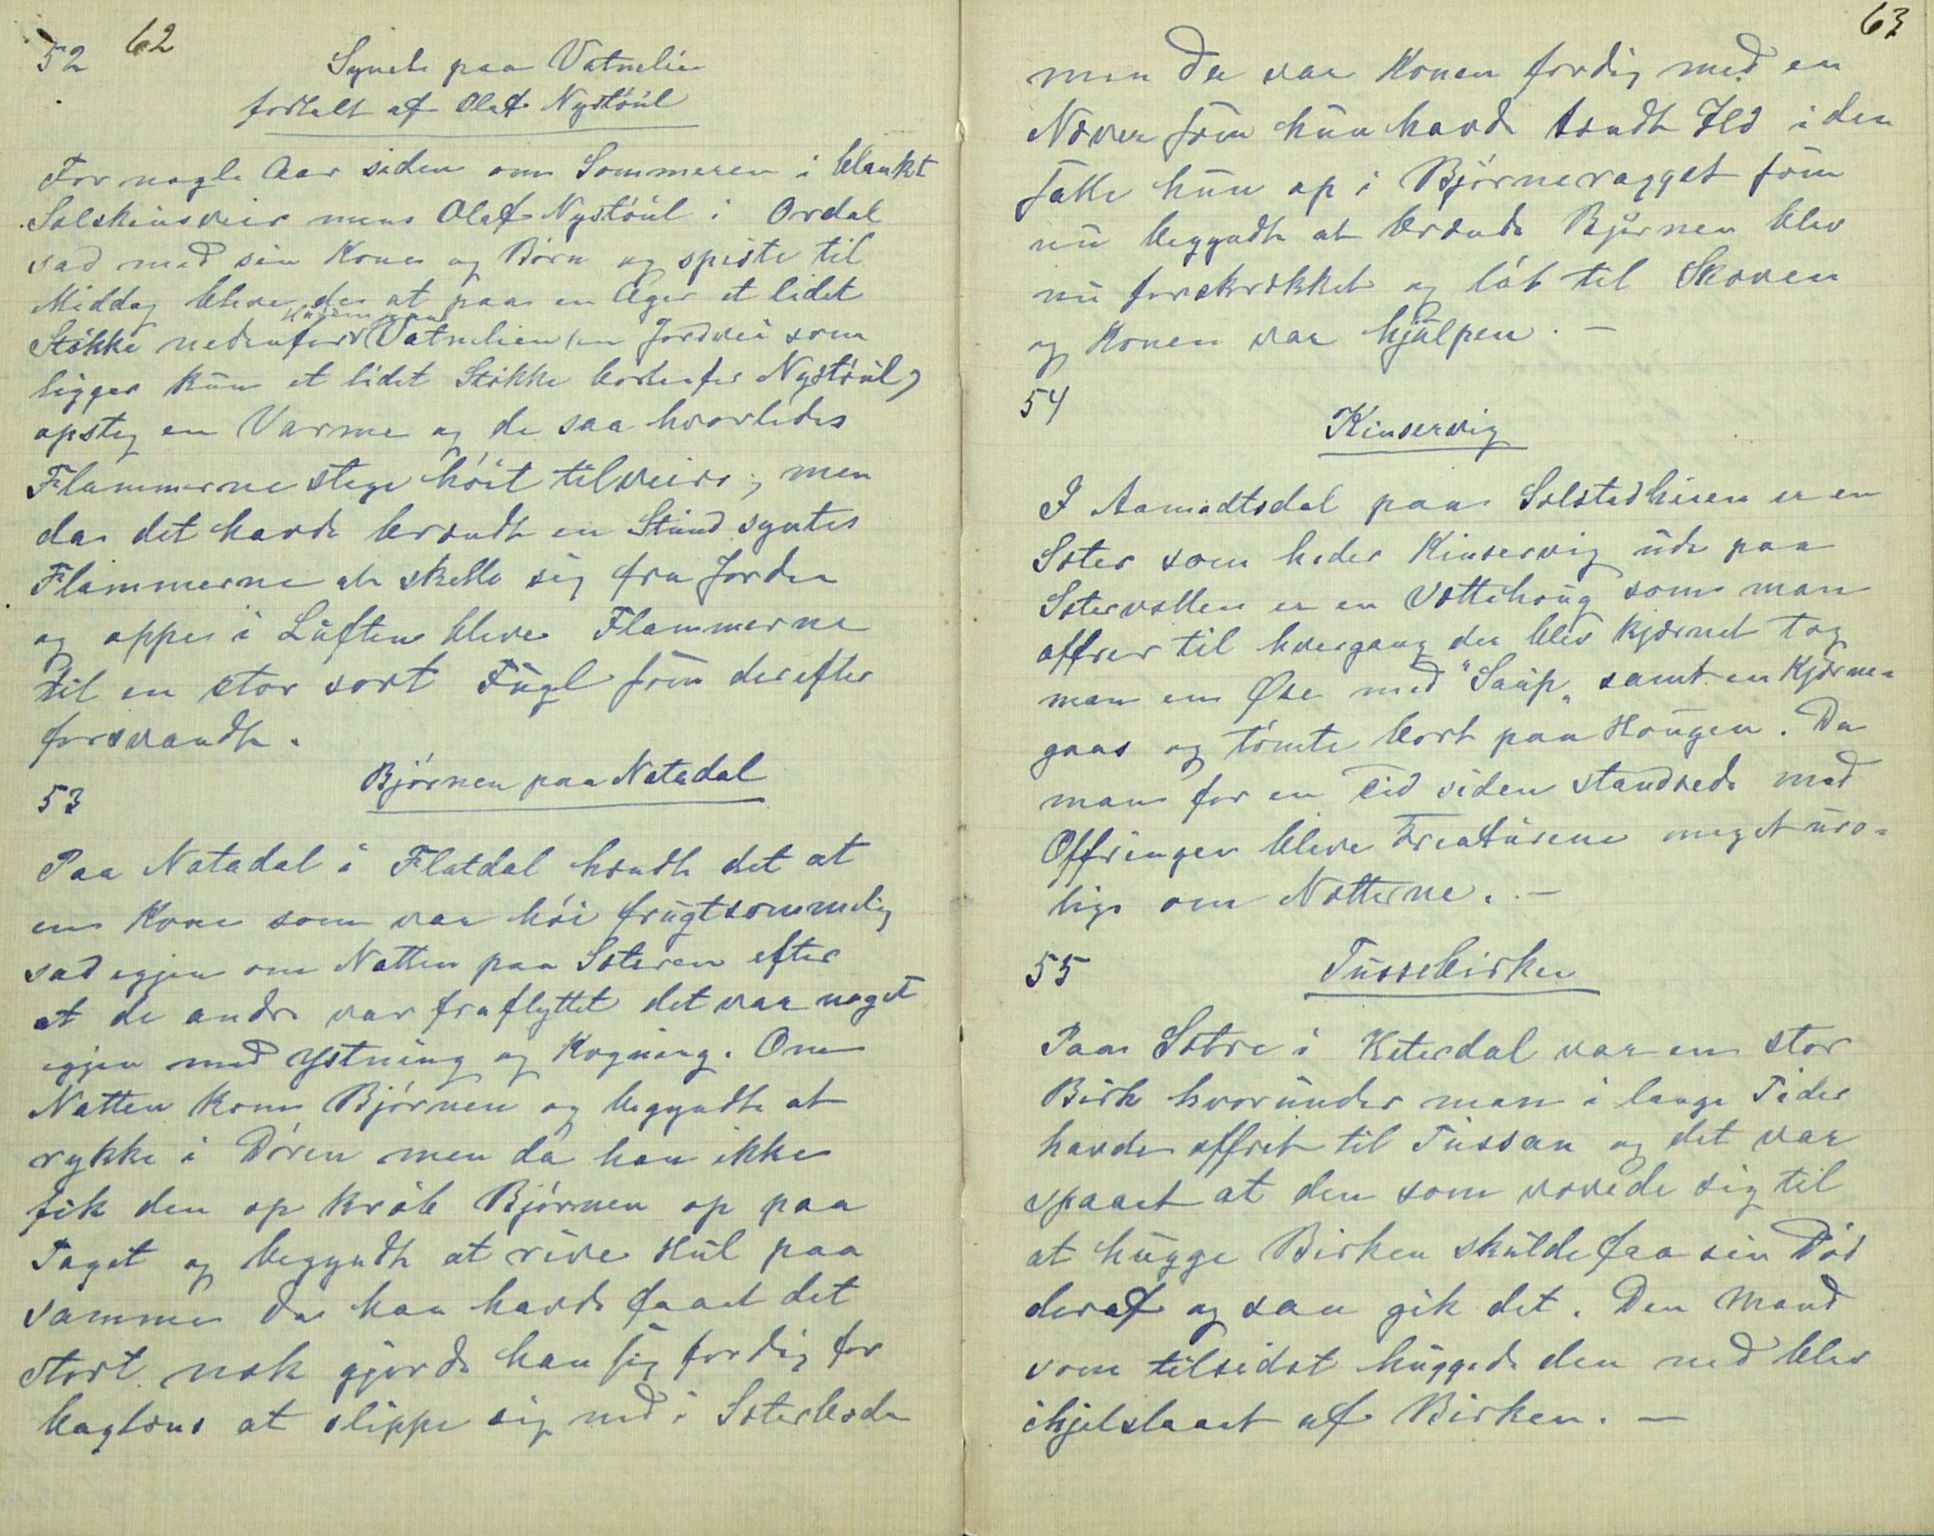 62
52
Synet paa Vatnelien
fortalt af Olaf Nystöül
For nogle Aar siden om Sommeren i blankt
Solskinsveir mens Olaf Nystöül i Ordal
sad med sin Kone og Børn og spiste til
Middag bleve de at paa en Ager et lidet
Stökke nedenfor Husene paa Vatnelien (en Jordvei som
ligger kun et lidet Stökke bortenfor Nystöül)
opsteg en Varme og de saa hvorledes
Flammerne stege höit tilveirs; men
da det havde brændt en Stünd syntes
Flammerne at skelle sig fra Jorden
og oppe i Lüften bleve Flammerne
til en stor sort Fügl som derefter
forsvandt.
53
Bjørnen paa Natadal
Paa Natadal i Flatdal hændte det at
en Kone som var höi frügtsommelig
sad igjen om Natten paa Sæteren efter
at de andre var fraflyttet det var noget
igjen med Ystning og Kogning. Om
Natten kom Bjørnen og begyndte at
rykke i Døren men da han ikke
fik den op krøb Bjørnen op paa
Taget og begyndte at rive Hül paa
samme da han havde faaet det
stort nok gjorde han sig færdig for
baglæns at slippe sig ned i Sæterboden
63
men da var Konen færdig med en
Næver som hun havde tændt Ild i den
satte hün op i Bjørneragget som
nü begyndte at brænde Bjørnen blev
nü forskrækket og løb til Skoven
og Konen var hjülpen. —
54
Kinservig
I Aamodtsdal paa Solstadheien er en
Sæter som heder Kinservig üde paa
Sætervollen er en Vættehoüg som man
offrer til hvergang der blev kjærnet tog
man en Øse med "Saüp" samt en Kjærne-
gaas og tömte bort paa Hougen. Da
man for en Tid siden standsede med
Offringen bleve Kreatürene meget üro-
lige om Nætterne. —
55
Tüssebirken
Paa Sætre i Hiterdal var en stor
Birk hvoründer man i lange Tider
havde offret til Tüssan og det var
spaaet at den som vovede sig til
at hügge Birken skülde faa sin Död
deraf og saa gik det. Den Mand
som tilsidst hüggede den ned blev
ihjelslaaet af Birken. —